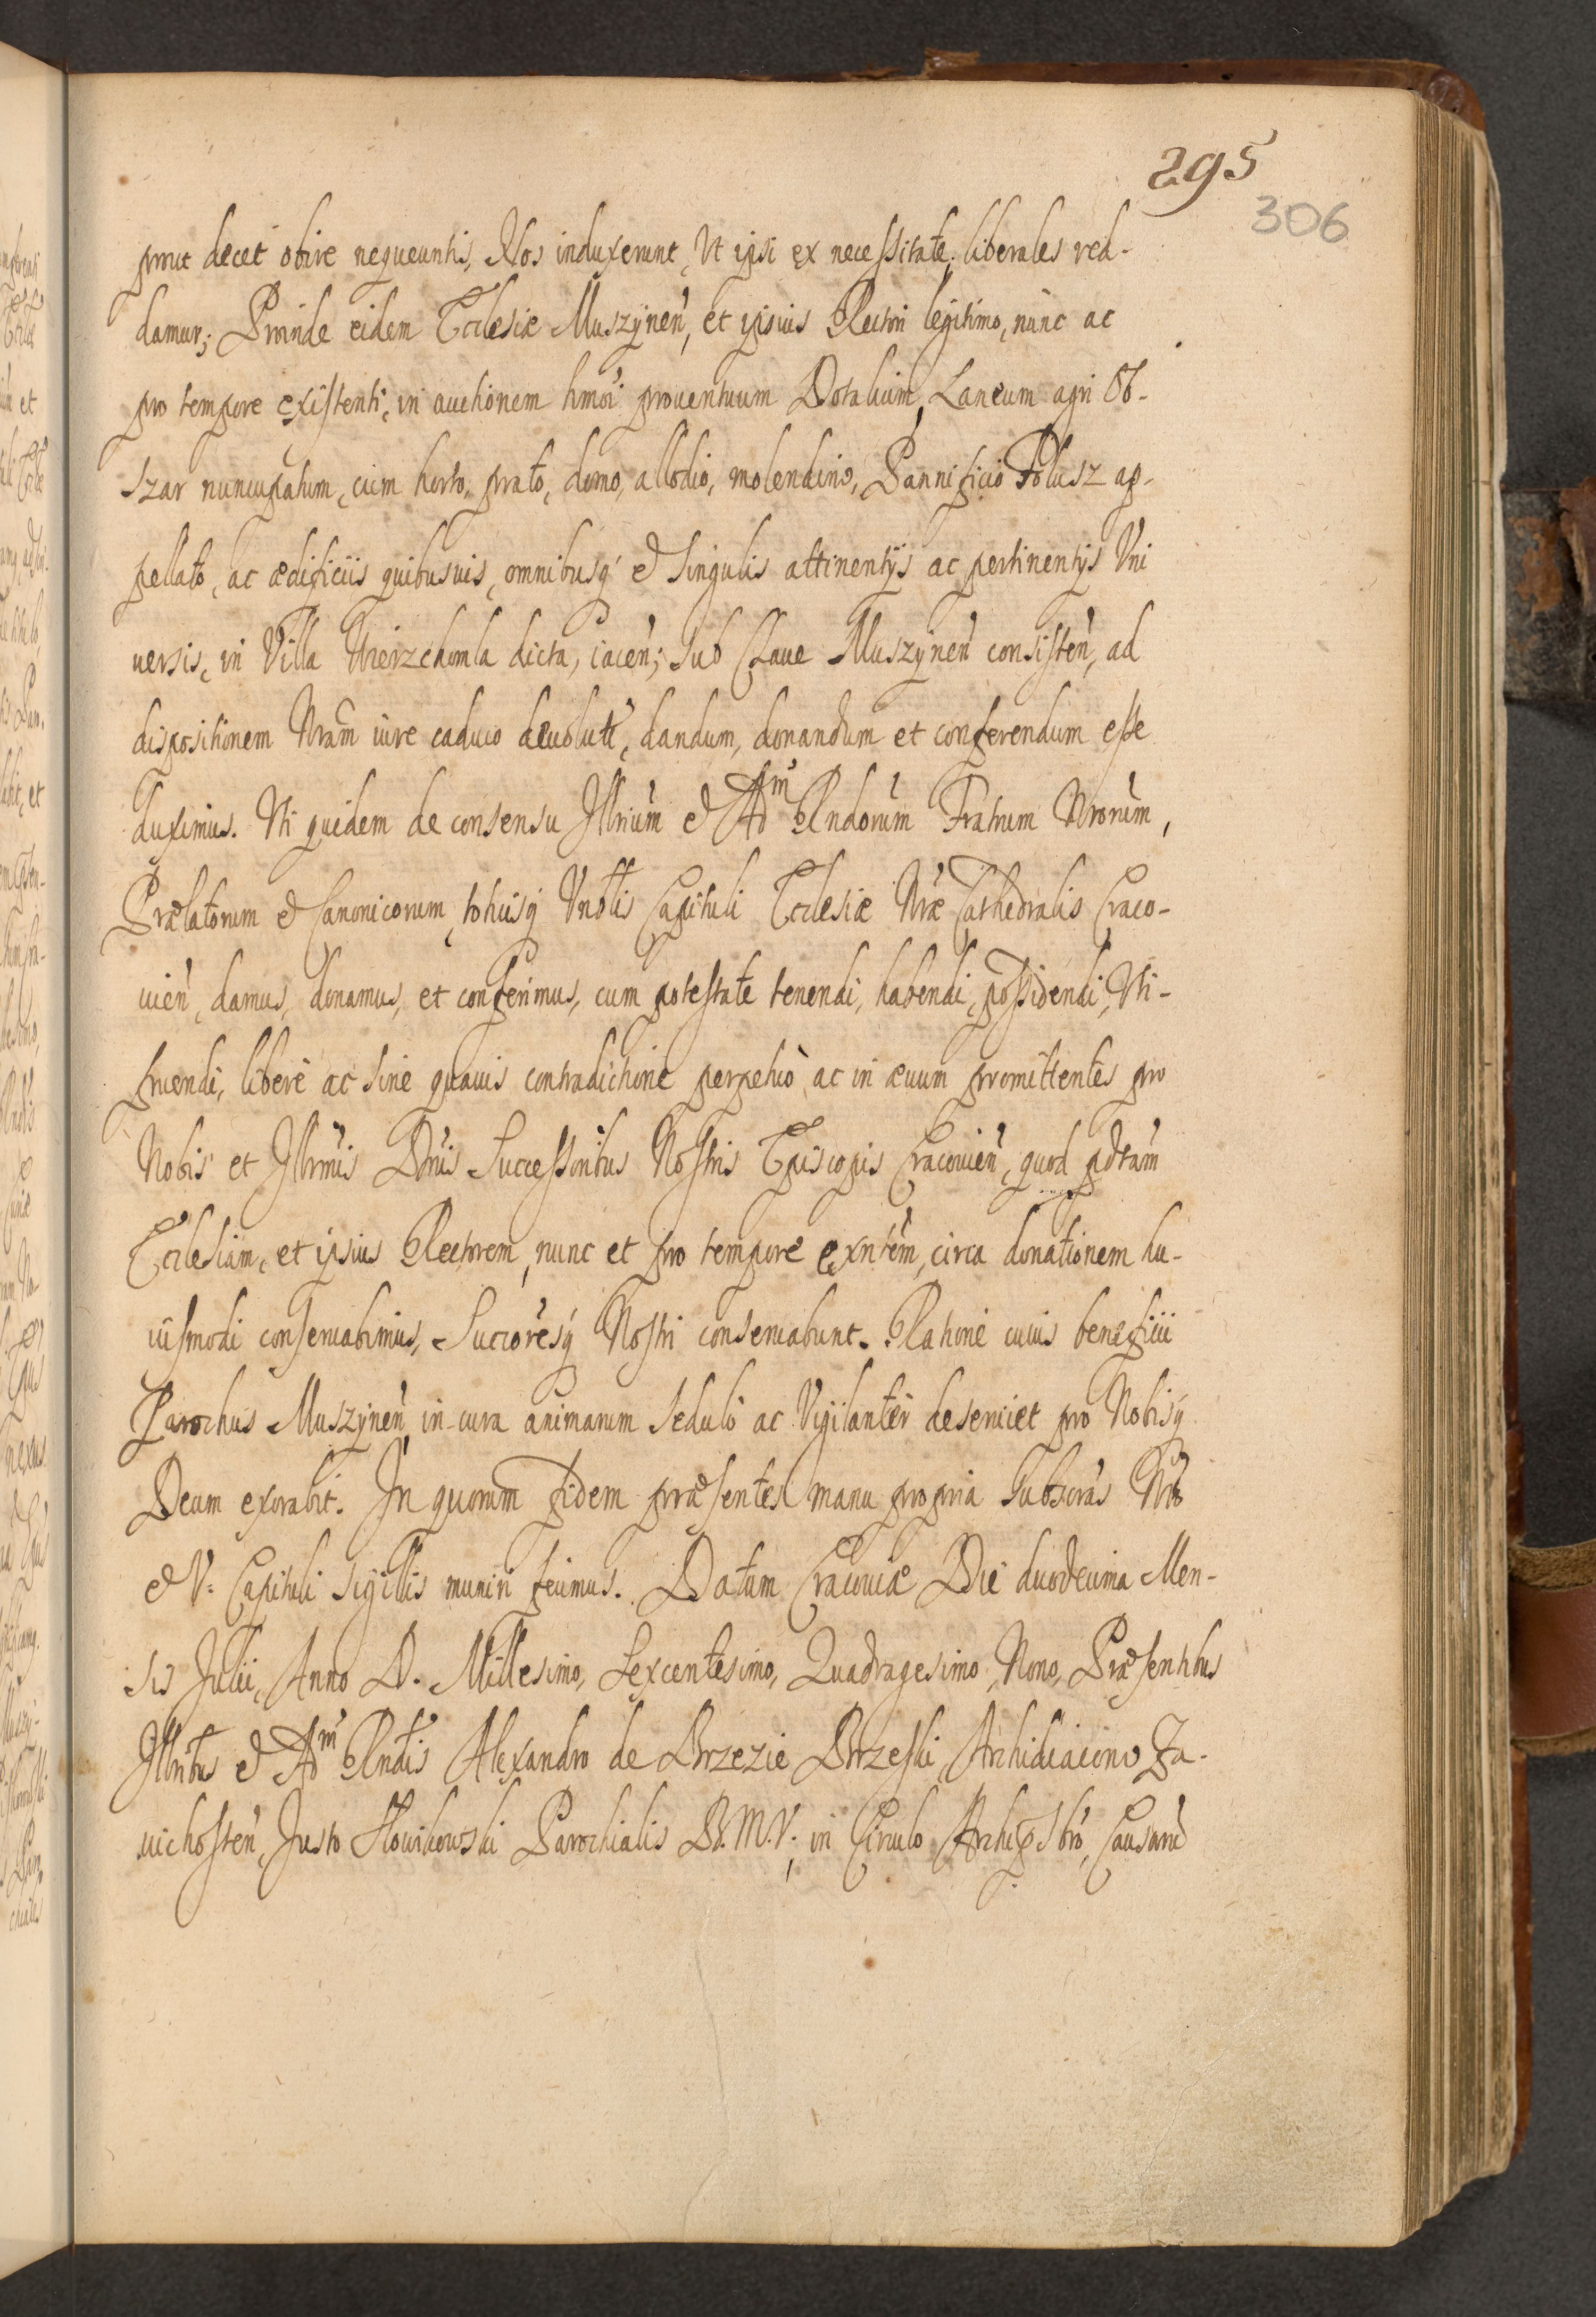 295
306
prout decet obire nequeuntis, Nos induxerunt, Vt ipsi ex necessitate liberales red-
damur; Proinde eidem Ecclesiæ Muszynen̄, et ipsius Rectori legitimo, nunc ac
pro tempore existenti, in auctionem hmōi prouentuum Dotalium, Laneum agri Ob-
szar nuncupatum, cum horto, prato, domo, allodio, molendino, Pannificio Folusz ap-
pellato, ac ædificiis quibusuis, omnibusq́ & singulis attinentijs ac pertinentijs Vni
uersis, in Villa Wierzchomla dicta, iacen̄; sub Claue Muszynen̄ consisten̄, ad
dispositionem Nrām iure caduco deuolutt, dandum, donandum et conferendum esse
duximus. Vti quidem de consensu Illrium̄ & Adm̄ Rndorum̄ Fratrum Nrorum̄,
Prælatorum & Canonicorum, totiusq́ Vnblis Capituli Ecclesiæ Nræ Cathedralis Craco-
uien̄, damus, donamus, et conferimus, cum potestate tenendi, habendi, possidendi, Vti-
fruendi, liberè ac sine quauis contradictione perpetuò ac in æuum promittentes pro
Nobis et Illrmis Dnis Successoribus Nostris Episcopis Cracouien̄, quod pdtam̄
Ecclesiam, et ipsius Rectorem, nunc et pro tempore exntem̄, circa donationem hu-
iusmodi conseruabimus, Succoresq́ Nostri conseruabunt. Ratione cuius beneficii
Parochus Muszynen̄ in cura animarum sedulò ac Vigilanter deseruiet pro Nobisq́
Deum exorabit. In quorum fidem præsentes manu propria Subscrās Nrō
& V: Capituli sigillis muniri fecimus. Datum Cracouiæ Die duodecima Men-
sis Julii, Anno D. Millesimo, Sexcentesimo, Quadragesimo, Nono, Præsentibus
Illribus & Adm̄ Rndis Alexandro de Brzezie Brzeski, Archidiacono Za-
uichosten̄, Justo Słowikowski Parochialis B.M.V. in Circulo Archipsbrō, Causarū